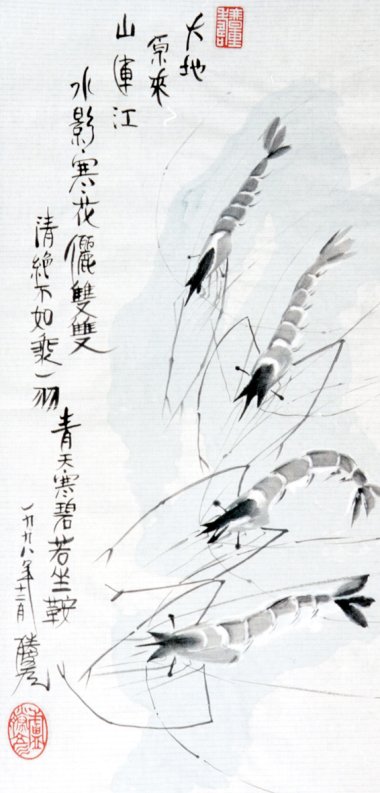 大地
原來
山連江
水影寒花儷雙雙
清絕不如乘一羽
青天寒碧若坐鞍
一九九八年十二月